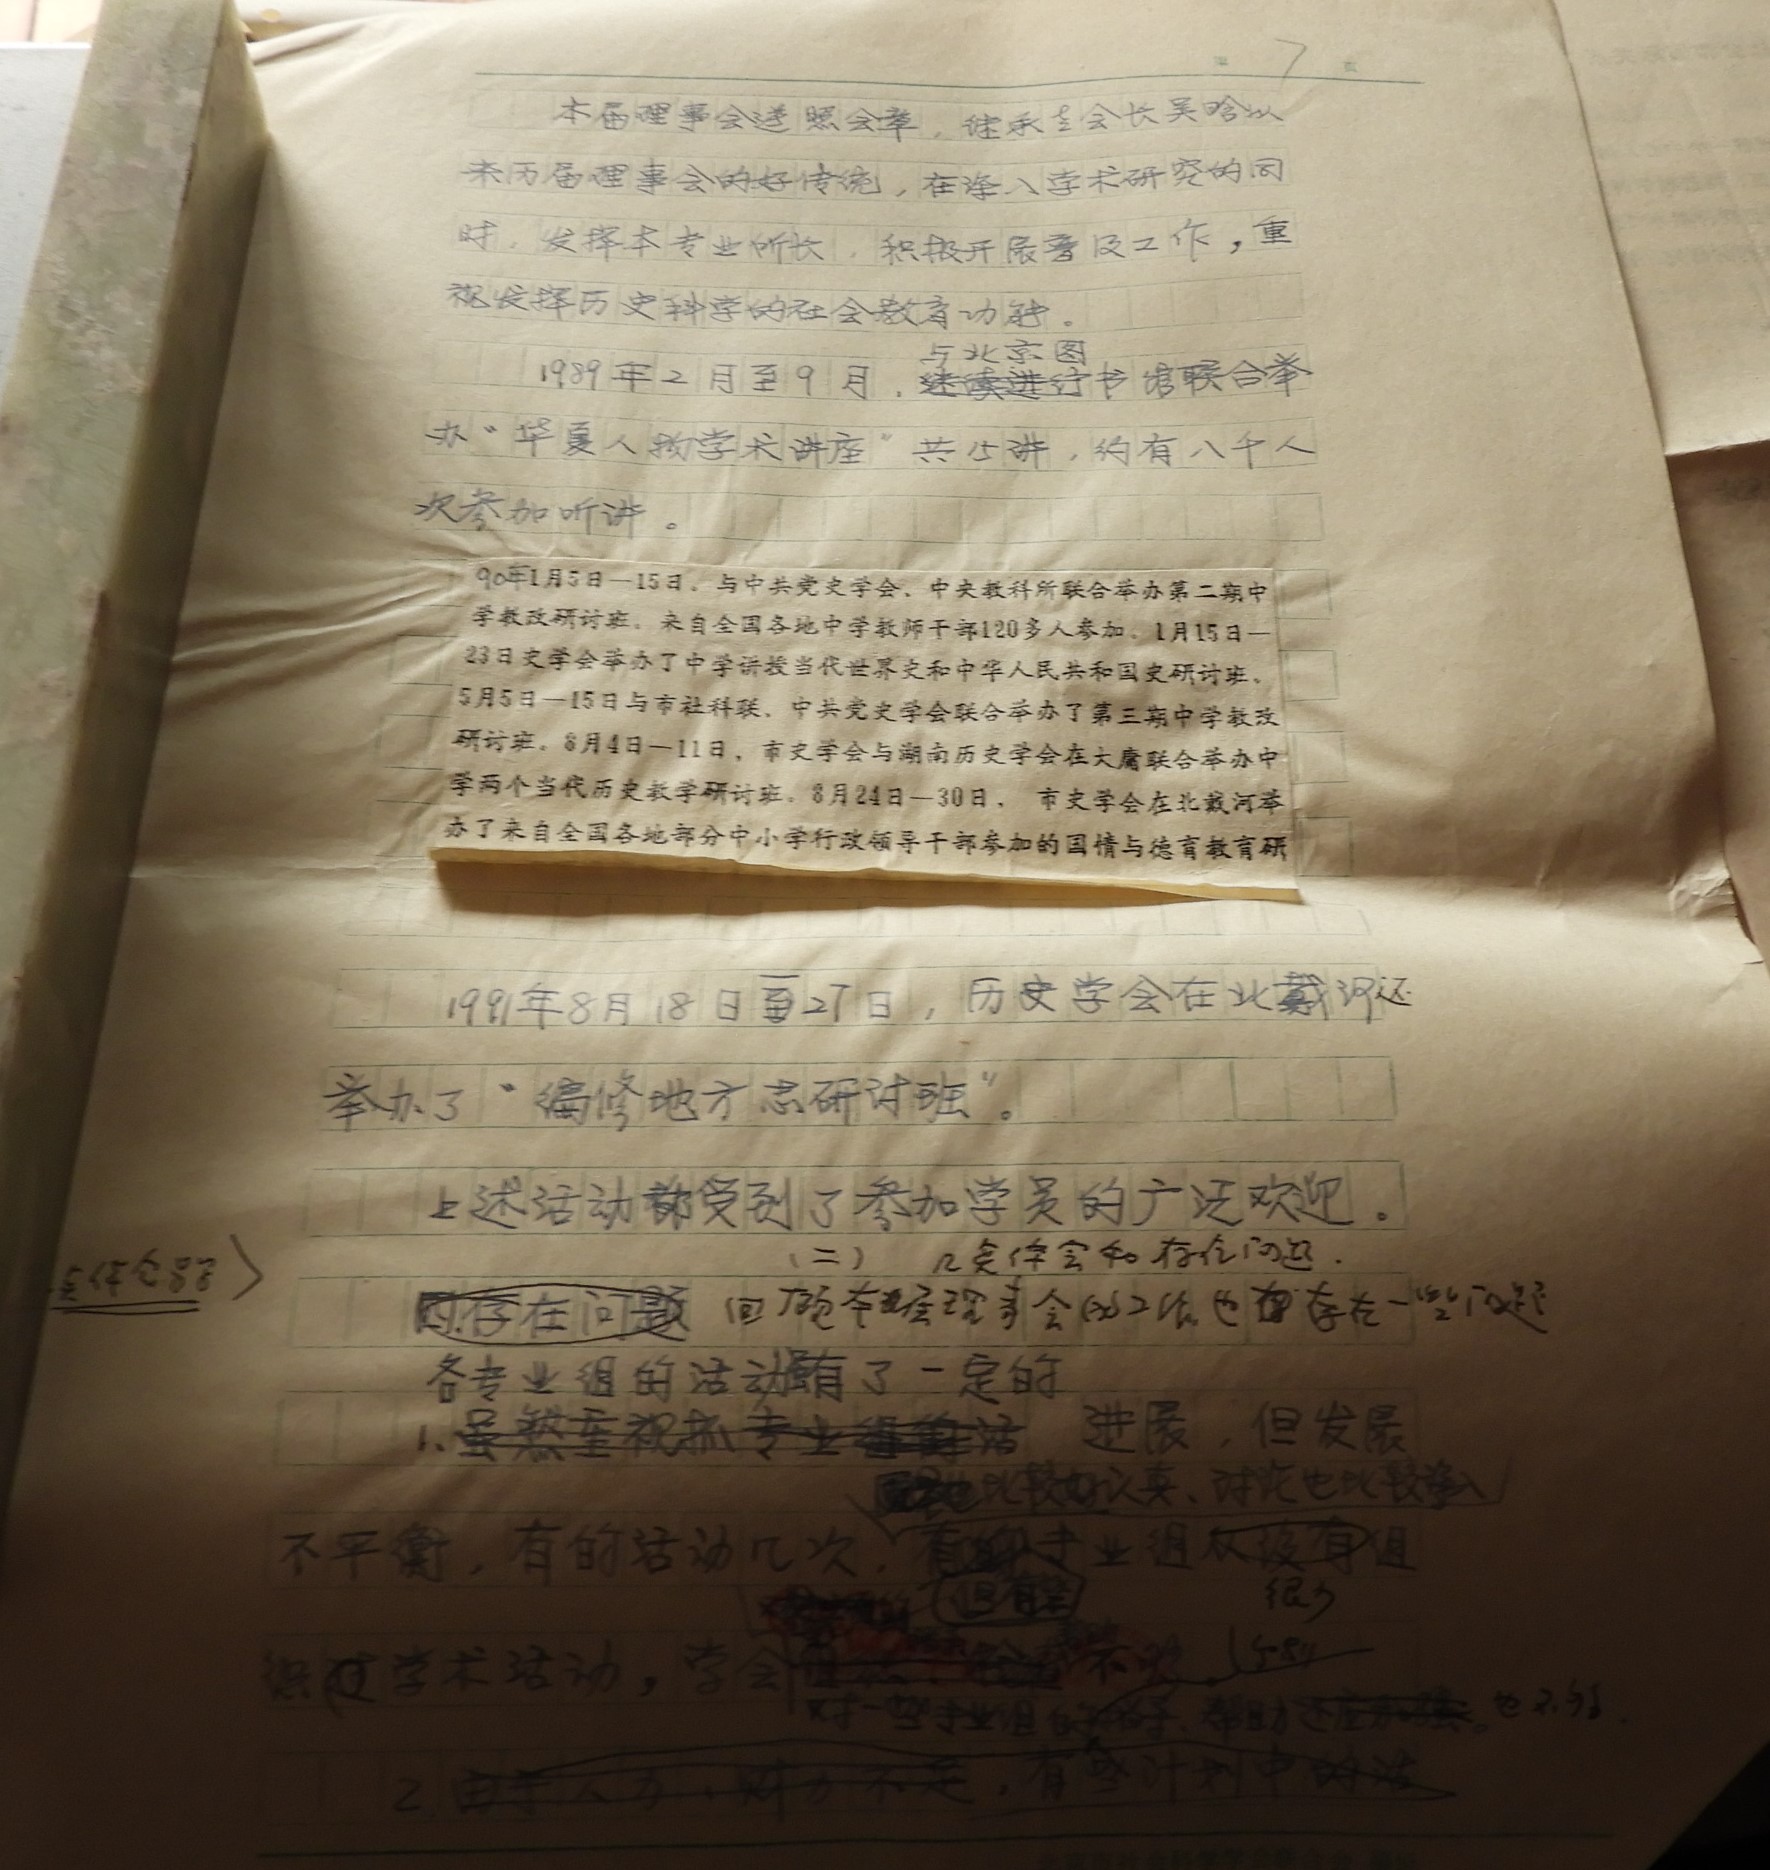 第 7 页
本届理事会遵照会章，继承老会长吴晗以
来历届理事会的好传统，在深入学术研究的同
时，发挥本专业所长，积极开展普及工作，重
视发挥历史科学的社会教育功能。
与北京图
1989年2月至9月，继续进行书馆联合举
办“华夏人物学术讲座”共15讲，约有八千人
次参加听讲。
90年1月5日—15日。与中共党史学会、中央教科所联合举办第二期中
学教改研讨班。来自全国各地中学教师干部120多人参加。1月15日—
23日史学会举办了中学讲授当代世界史和中华人民共和国史研讨班。
5月5日—15日与市社科联、中共党史学会联合举办了第三期中学教改
研讨班。8月4日—11日，市史学会与湖南历史学会在大庸联合举办中
学两个当代历史教学研讨班。8月24日—30日， 市史学会在北戴河举
办了来自全国各地部分中小学行政领导干部参加的国情与德育教育研
1991年8月18日至27日，历史学会在北戴河还
举办了“编修地方志研讨班”。
上述活动都受到了参加学员的广泛欢迎。
（二） 几点体会和存在问题.
存在问题 回顾本届理事会的工作也存在一些问题
各专业组的活动有了一定的
1.虽然重视抓专业 活 进展，但发展
比较认真、讨论也比较深入
不平衡，有的活动几次，专业组 没有组
但有些 很少
织过学术活动，学会 不够
对一些专业组的 帮助 也不够.
2.由于人力、财力不足，有些计划中的活